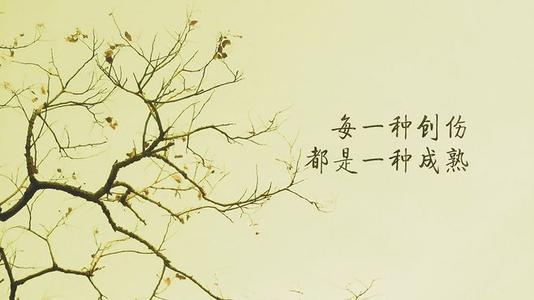 每一种创份
都是一种成熟